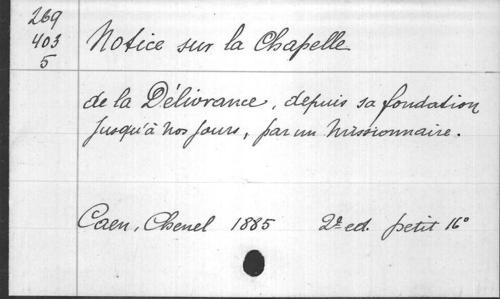 269
403
5
Notice sur la Chapelle
de la Délivrance, depuis sa fondation
jusqu'à nos jours, par un missionnaire.
Caen, Chenel 1885 2e ed. petit 16°